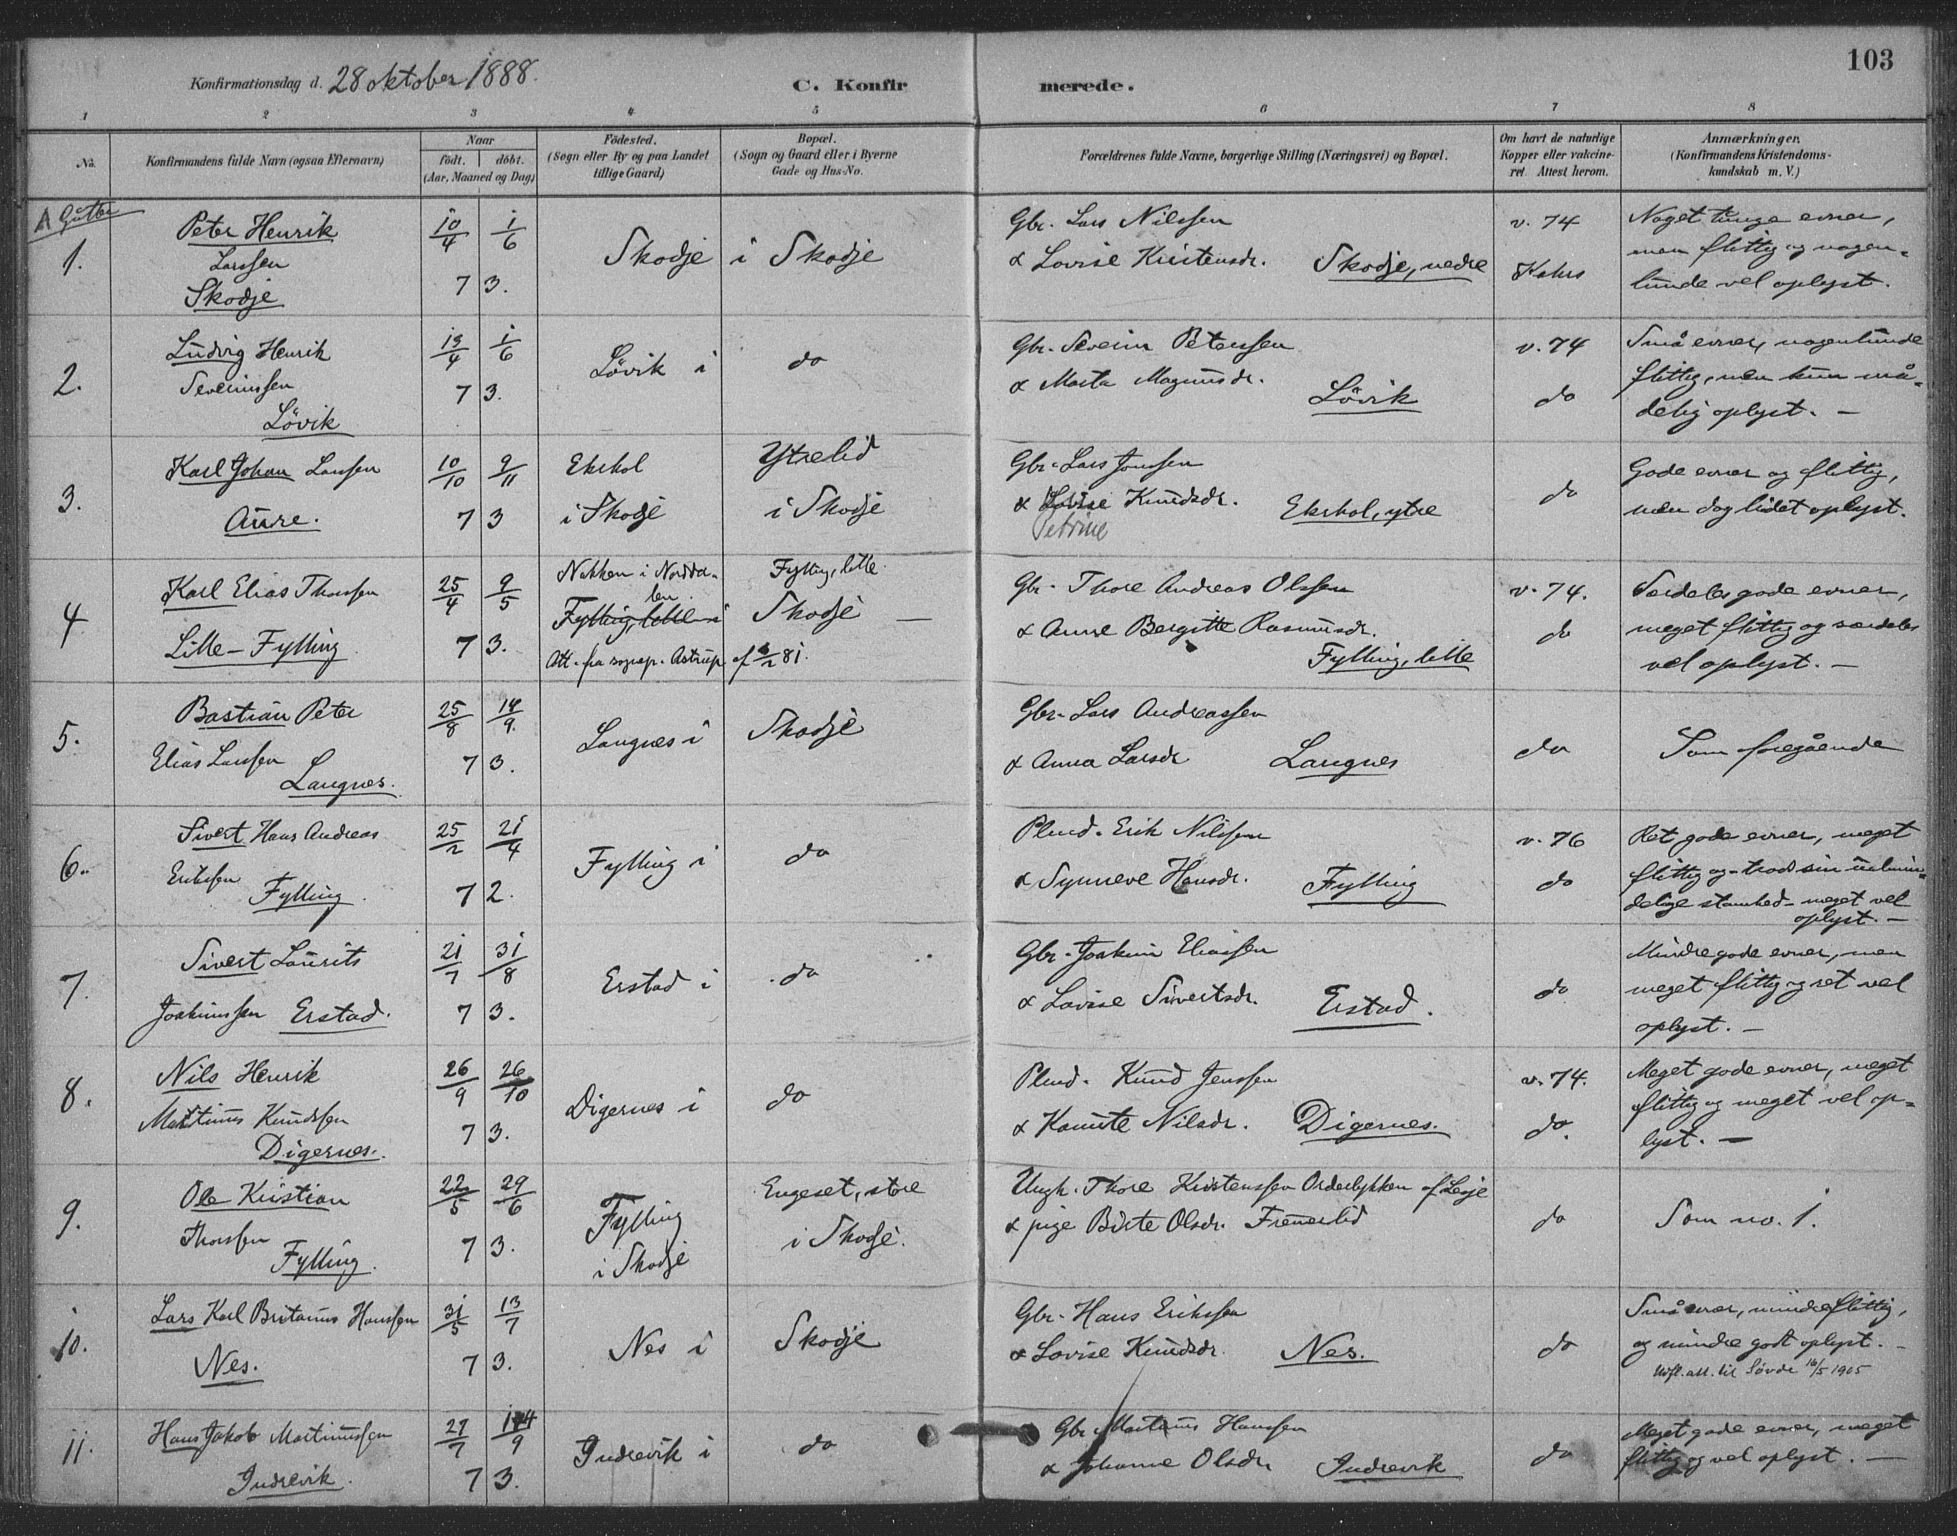 103
Konfirmationsdag d. 28 oktober 1888.
C. Konfirmerede.
1 2 3 4 5 6 7 8
No.
Konfirmandens fulde Navn (ogsaa Efternavn)
Naar
födt. döbt.
(Aar, Maaned og Dag)
Födested.
(Sogn eller By og paa Landet
tillige Gaard)
Bopæl.
(Sogn og Gaard eller i Byerne
Gade og Hus-No.
Forældrenes fulde Navne, borgerlige Stilling (Næringsvei) og Bopæl.
Om havt de naturlige
Kopper eller vakcine-
ret. Attest herom.
Anmærkninger.
(Konfirmandens Kristendoms-
kundskab m. V.)
A Gutter
1.
Peter Henrik
Larssen
Skodje
10/4 1/6
7 3.
Skodje i Skodje
Gbr. Lars Nilssen
& Lovise Kristensdr. Skodje, nedre
v. 74
Kahrs
Noget tunge evner,
men flittig og nogen-
lunde vel oplyst.
2.
Ludvig Henrik
Severinssen
Lövik
13/4 1/6
7 3.
Lövik i do
Gbr. Severin Peterssen
& Marta Magnusdr. Lövik
v. 74
do
Små evner, nogenlunde
flittig, men kun må-
delig oplyst. —
3.
Karl Johan Larssen
Aure.
10/10 9/11
7 3
Ekrhol
i Skodje
Ytrelid
i Skodje
Gbr. Lars Jonssen
& Lovise Knudsdr. Ekrhol, ytre
Petrine
do
Gode evner og flittig,
men dog lidet oplyst.
4
Karl Elias Thorssen
Lille-Fylling
25/4 9/5
7 3.
Nakken i Nordda-
len.
Fylling, lille i
Att. fra sogep. Astrup af 6/12 81.
Fylling, lille
Skodje —
Gbr. Thore Andreas Olssen
& Anne Bergitte Rasmusdr.
Fylling, lille
v. 74.
do
Særdeles gode evner,
meget flittig og særdeles
vel oplyst. —
5.
Bastian Peter
Elias Larssen
Langnes.
25/8 14/9.
7 3.
Langnes i Skodje
Gbr. Lars Andreassen
& Anna Larsdr Langnes
do
Som foregående
6.
Sivert Hans Andreas
Erikssen
Fylling.
25/2 21/4
7 2.
Fylling i do
Plmd. Erik Nilssen
& Synneve Hansdr. Fylling
v. 76
do
Ret gode evner, meget
flittig og - trods sin ualmin-
delige stamhed - meget vel
oplyst. —
7.
Sivert Laurits
Joakimssen Erstad.
21/7 31/8
7 3.
Erstad i do
Gbr. Joakim Eliassen
& Lovise Sivertsdr. Erstad.
do
Mindre gode evner, men
meget flittig og ret vel
oplyst. —
8.
Nils Henrik
Martinus Knudssen
Digernes.
26/9 26/10
7 3.
Digernes i do
Plmd. Knud Jenssen
& Kanute Nilsdr. Digernes.
v. 74.
do.
Meget gode evner, meget
flittig og meget vel op-
lyst. —
9.
Ole Kristian
Thorssen
Fylling.
22/5 29/6
7 3.
Fylling
i Skodje
Engeset, store
i Skodje.
Ungk. Thore Kristenssen Orderlykken af Lesje
& pige Birte Olsdr. Frenerlid
do
Som no. 1.
10.
Lars Karl Britanus Hanssen
Nes.
31/5 13/7
7 3.
Nes i Skodje
Gbr. Hans Erikssen
& Lovise Knudsdr. Nes.
do
Små evner, mindre flittig,
og mindre godt oplyst. —
Udfl.att. til Sövde 16/5 1905
11.
Hans Jakob Martinussen
Indrevik.
27/7 14/9
7 3.
Indrevik i do
Gbr. Martinus Hanssen
& Johanne Olsdr. Indrevik
do
Meget gode evner, meget
flittig og vel oplyst. —